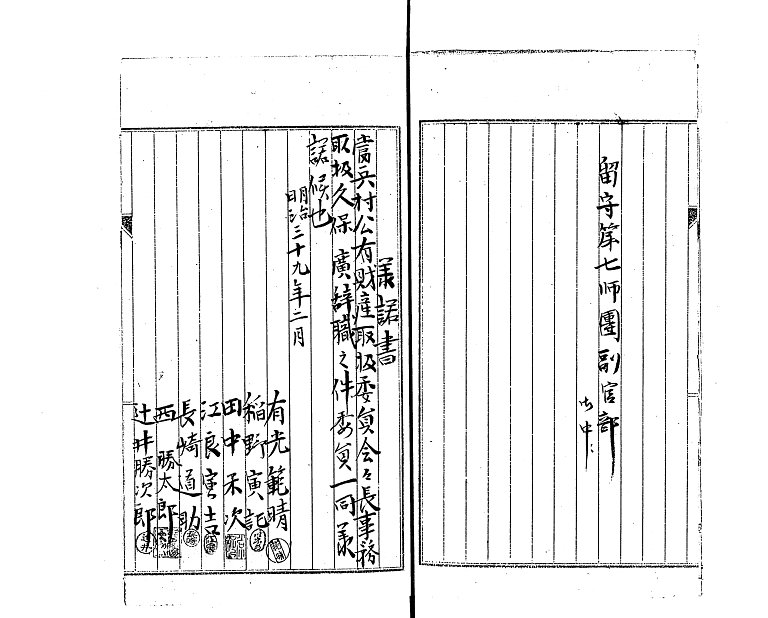 留守第七師團副官部
御中
承諾書
當兵村公有財産取扱委員会々長事務
取扱久保廣辞職之件委員一同承
諾候也
明治三十九年二月
日
有光範晴
稲野寅記
田中禾次
江良寅吉
長崎道助
西勝太郎
辻井勝次郎